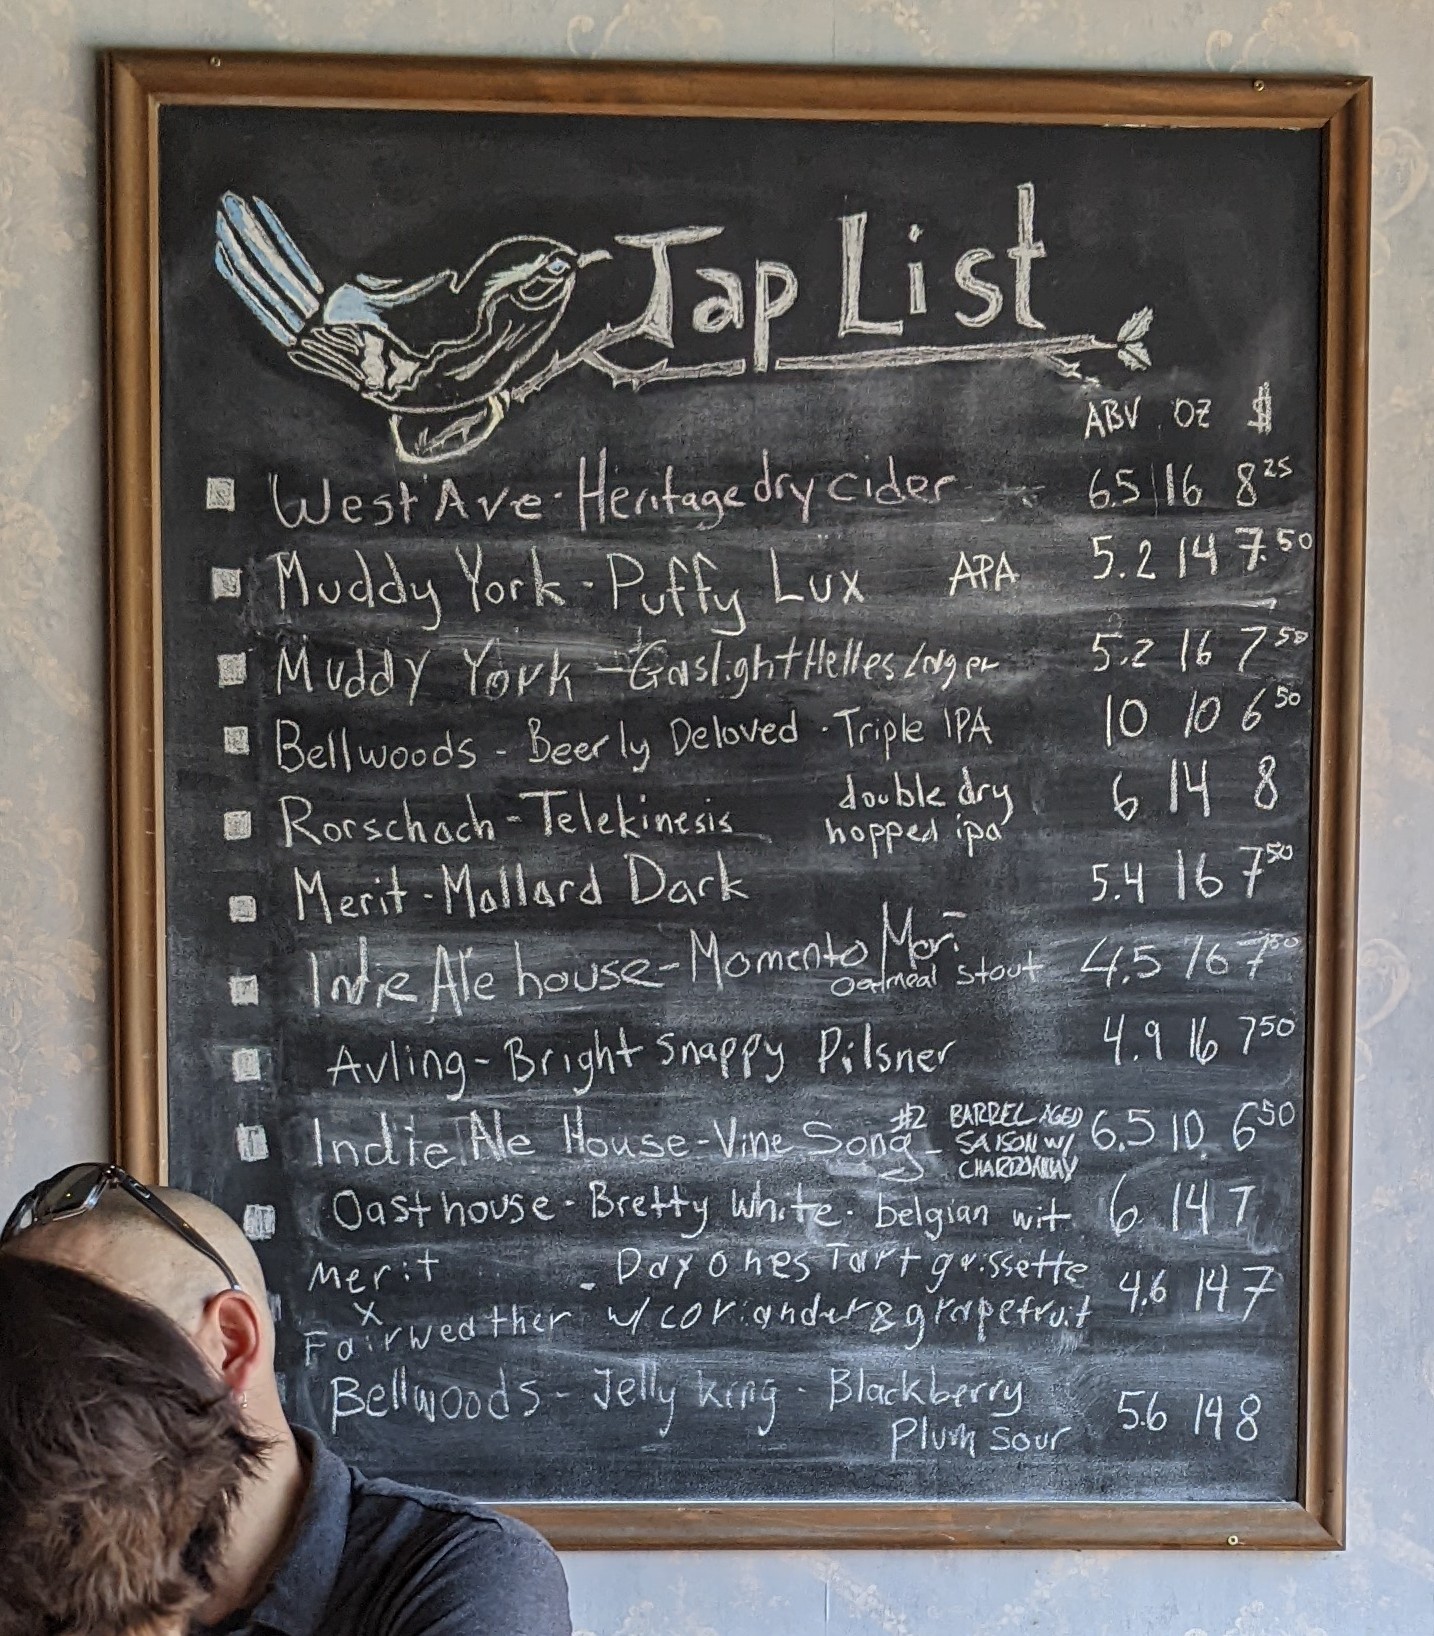 Tap List
ABV OZ $
West Ave · Heritage dry cider 6.5 16 8 25
Muddy York - Puffy Lux APA 5.2 14 7.50
Muddy York - Gaslight Helles Lager 5.2 16 7 50
Bellwoods - Beerly Beloved · Triple IPA 10 10 6 50
Rorschach - Telekinesis double dry hopped ipa 6 14 8
Merit - Mallard Dark 5.4 16 7 50
Indie Ale house - Momento Mori oatmeal stout 4.5 16 7 50
Avling - Bright Snappy Pilsner 4.9 16 7 50
Indie Ale House - Vine Song #2 - BARREL AGED SAISON W/ CHARDONNAY 6.5 10 6 50
Oast house - Bretty White · belgian wit 6 14 7
Merit - Day Ones Tart grissette 4.6 14 7
X
Fairweather w/ coriander & grapefruit
Bellwoods - Jelly king - Blackberry 5.6 14 8
Plum Sour